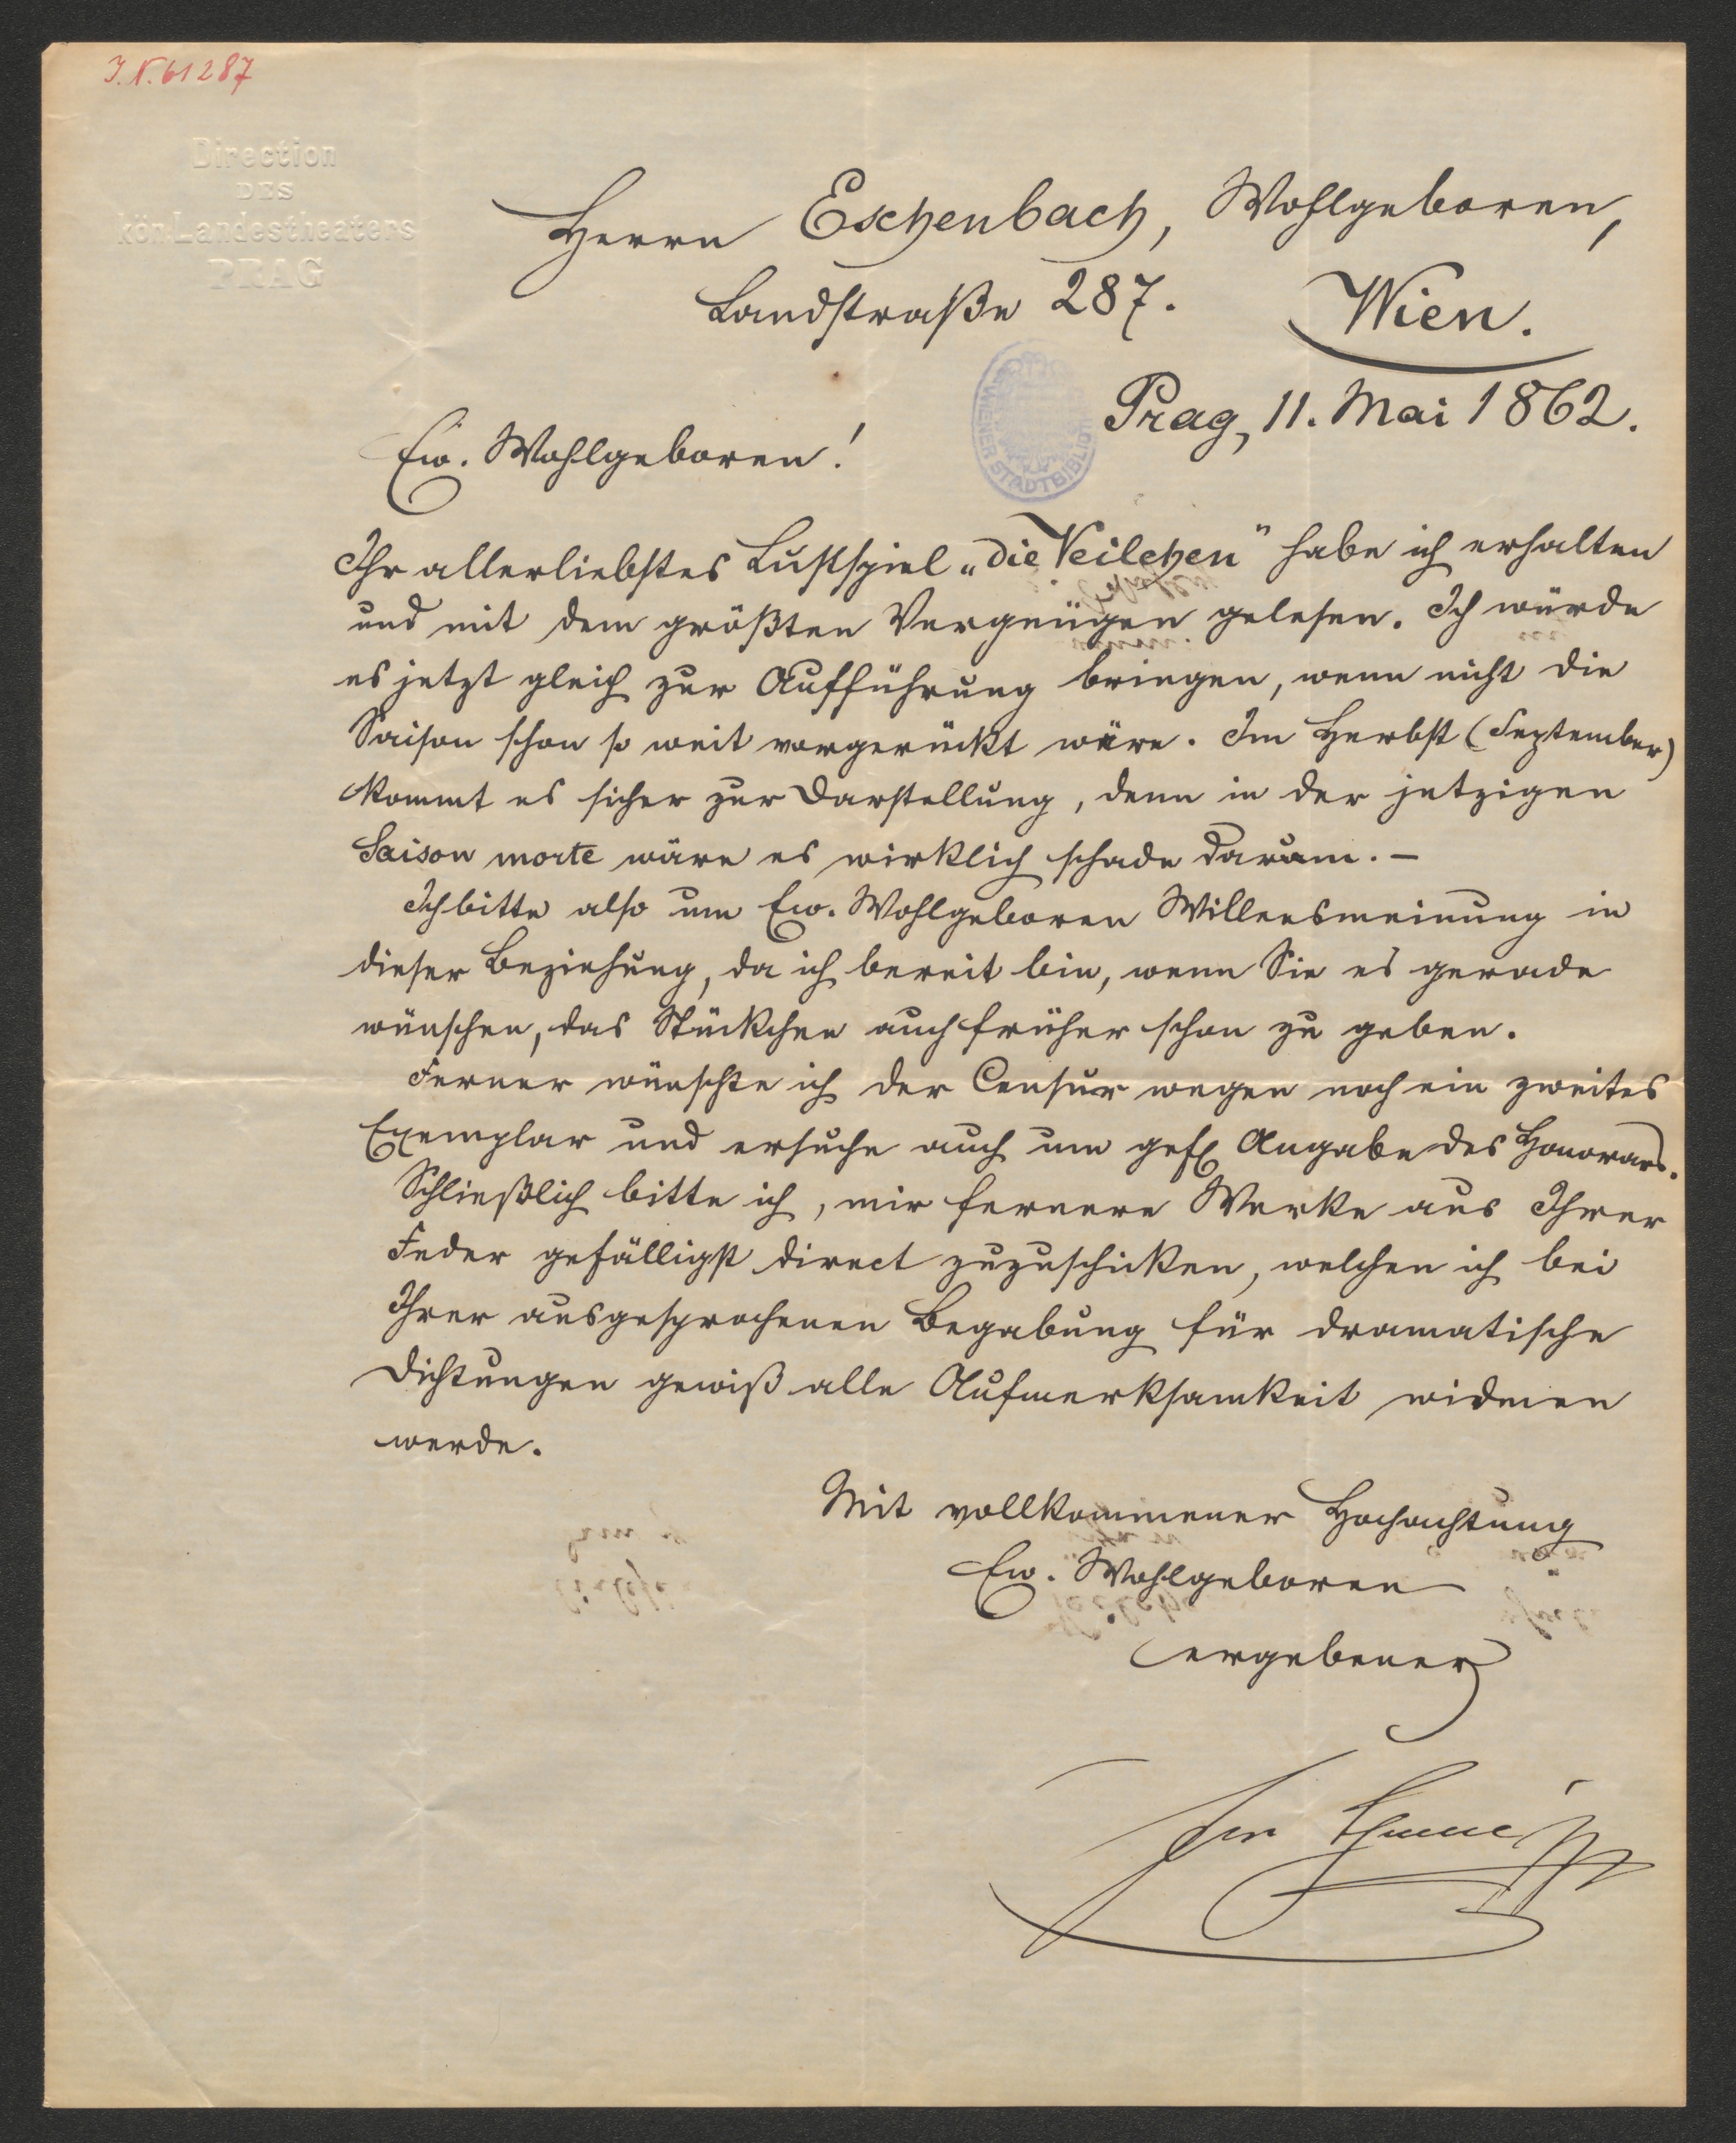 J.N. 61287
Direction
DES
kön. Landestheaters
PRAG
Herrn Eschenbach, Wohlgeboren,
Landstraße 287. Wien.
Prag, 11. Mai 1862.
Ew. Wohlgeboren!
Ihr allerliebstes Lustspiel „die Veilchen" habe ich erhalten
und mit dem größten Vergnügen gelesen. Ich würde
es jetzt gleich zur Aufführung bringen, wenn nicht die
Saison schon so weit vorgerückt wäre. Im Herbst (September)
kommt es sicher zur Darstellung, denn in der jetzigen
Saison morte wäre es wirklich schade darum. —
Ich bitte also um Ew. Wohlgeboren Willensmeinung in
dieser Beziehung, da ich bereit bin, wenn Sie es gerade
wünschen, das Stückchen auch früher schon zu geben.
Ferner wünschte ich der Censur wegen noch ein zweites
Exemplar und ersuche auch um gef. Angabe des Honorars.
Schließlich bitte ich, mir fernere Werke aus Ihrer
Feder gefälligst direct zuzuschicken, welchen ich bei
Ihrer ausgesprochenen Begabung für dramatische
Dichtungen gewiß alle Aufmerksamkeit widmen
werde.
Mit vollkommener Hochachtung
Ew. Wohlgeboren
ergebener
WIENER STADTBIBLIOTHEK